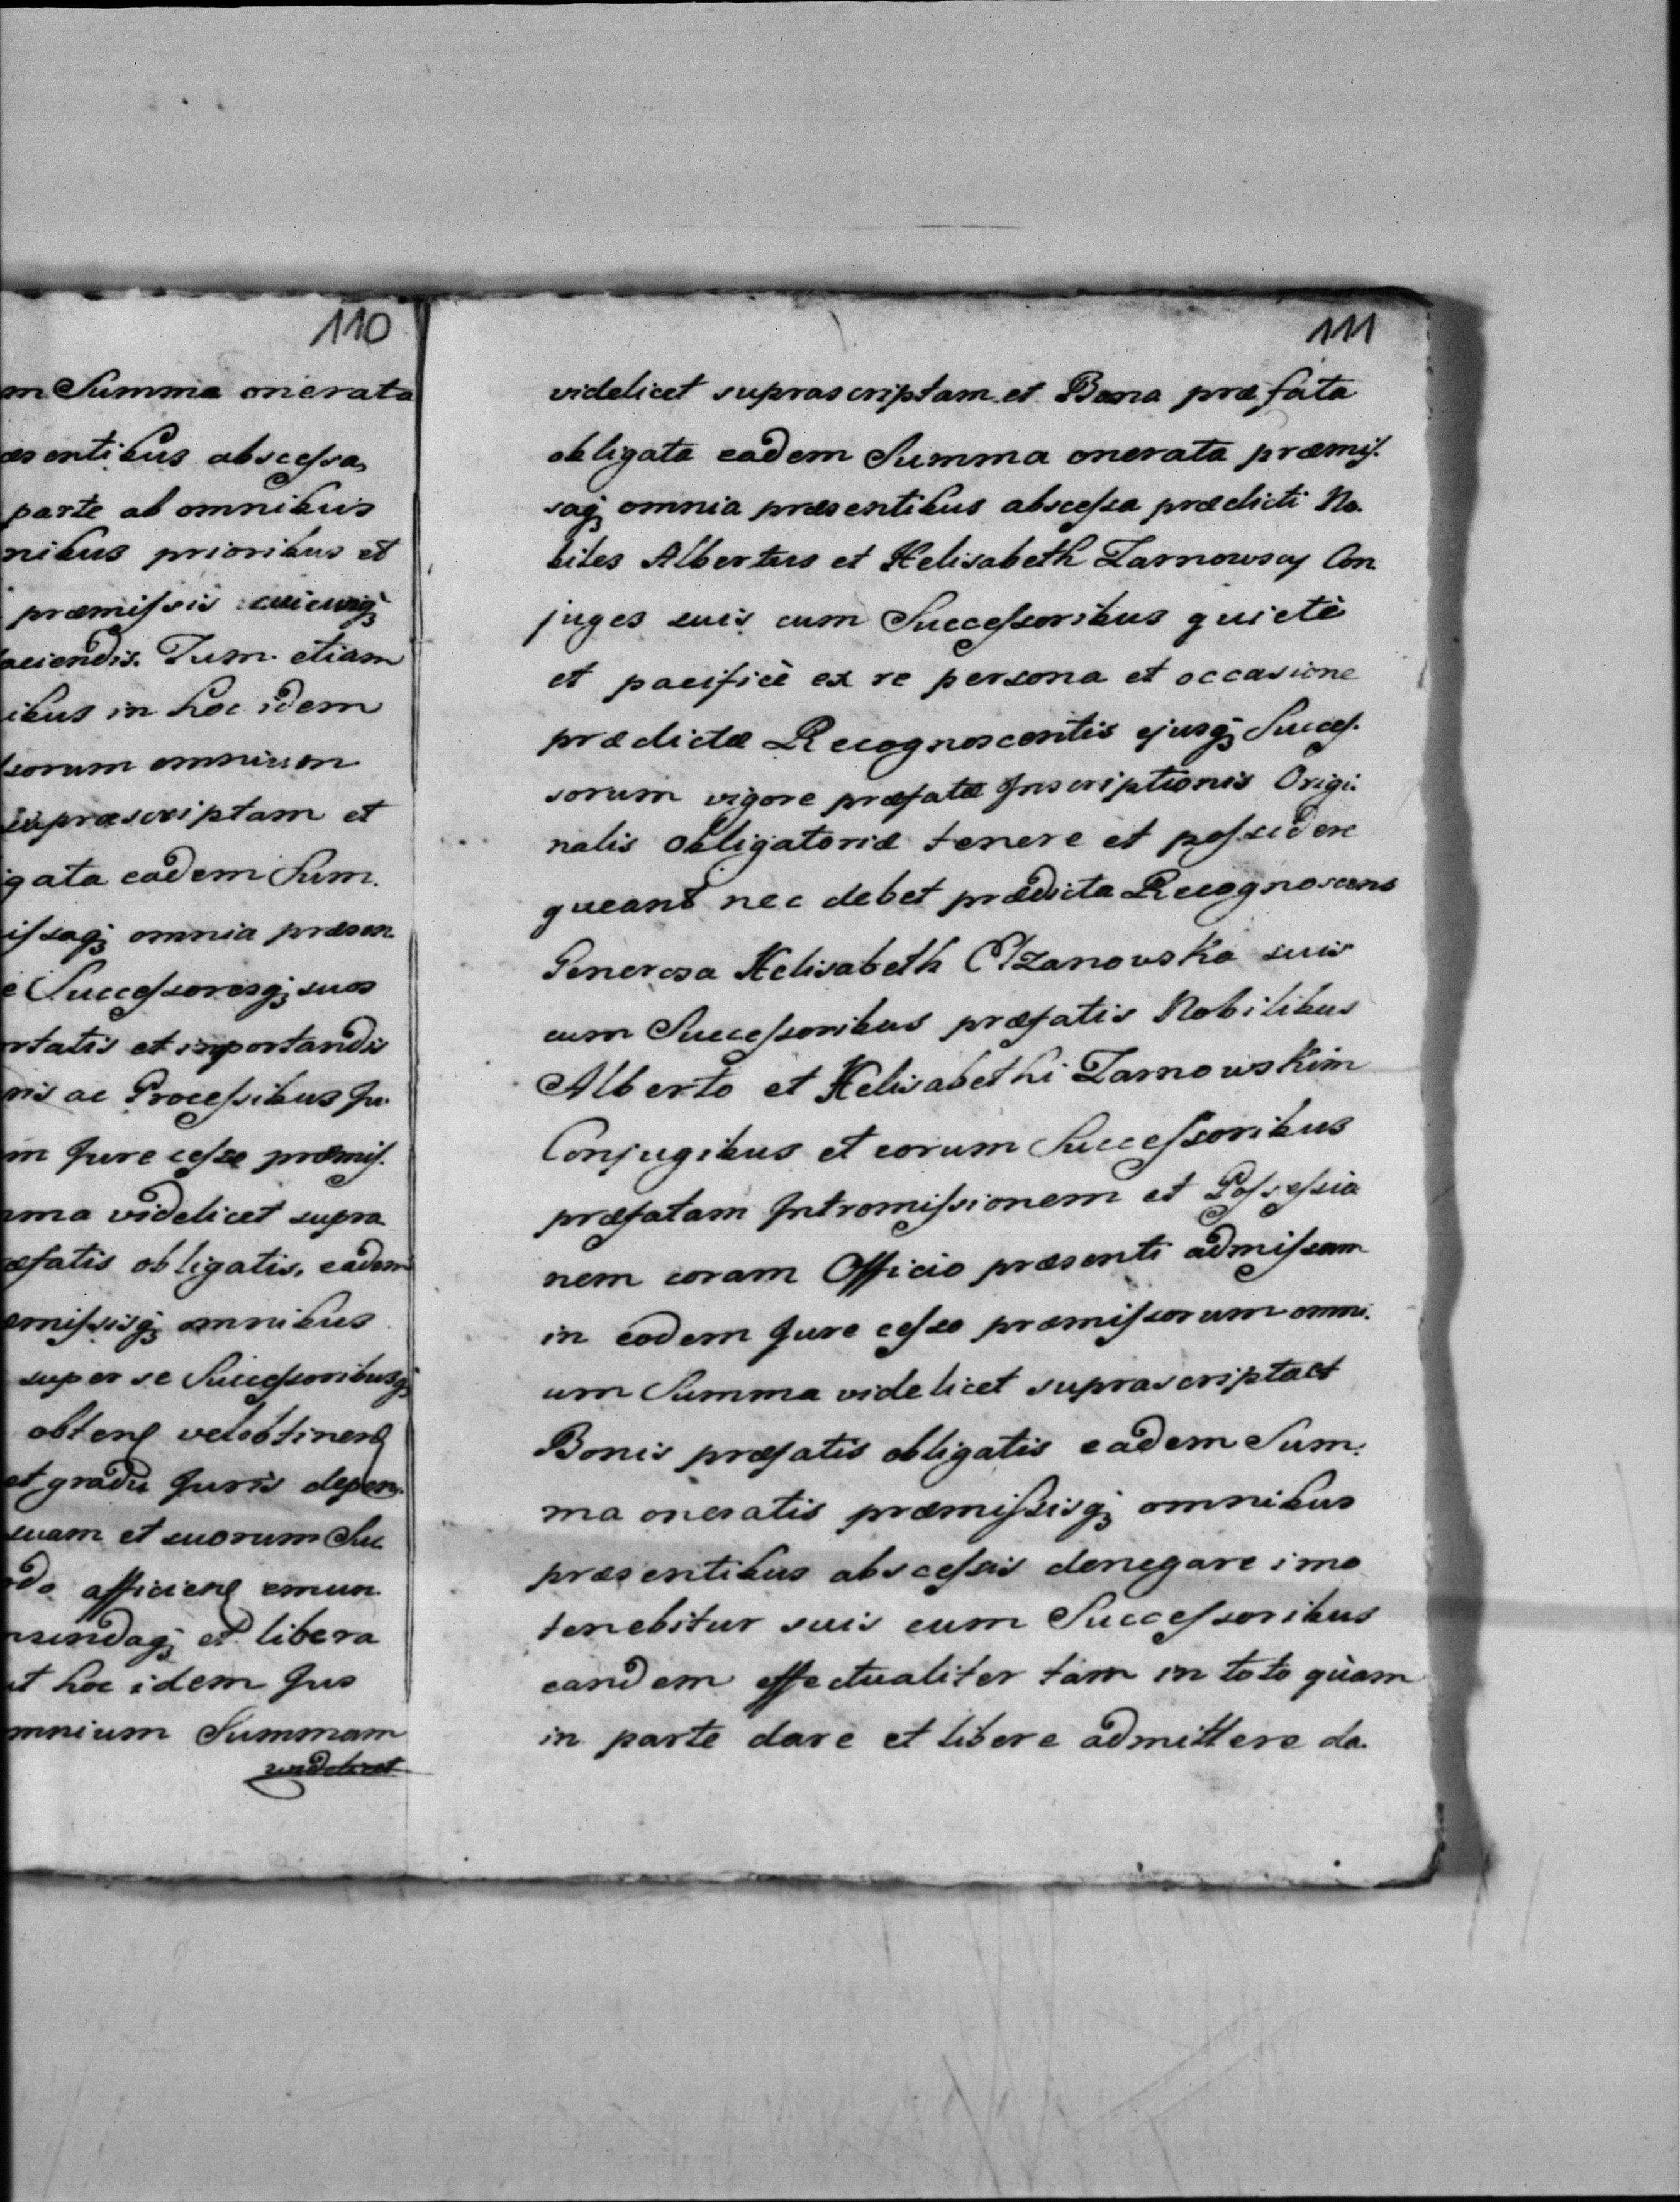 110
m Summa onerata
æsentibus abscessa,
parte ab omnibus
nibus prioribus et
præmissis cuicunq;
aciendis. Tum etiam
ibus in hoc idem
sorum omnium
supræscriptam et
gata eadem Sum.
issaq; omnia præsen
e Successoresq; suos
rtatis et inportandis
nis ac Processibus Ju.
m Jure cesso præmis.
mma videlicet supra
æfatis obligatis, eadem
emissisq; omnibus
super se Successoribusq;
obten vel obtinen
et gradu Juris depen.
suam et suorum Suc
odo afficien emun
nundaq; et libera
ut hoc idem Jus
mnium Summam
videlicet
111
videlicet suprascriptam et Bona præfata
obligata eadem Summa onerata præmis.
saq; omnia præsentibus abscessa prædicti No.
biles Albertus et Helisabeth Tarnowscy Con
juges suis cum Successoribus quietè
et pacificè ex re persona et occasione
prædictæ Recognoscentis ejusq; Succes.
sorum vigore præfatæ Inscriptionis Origi.
nalis Obligatoriæ tenere et possidere
queant nec debet prædicta Recognoscens
Generosa Helisabeth Olzanowska suis
cum Successoribus præfatis Nobilibus
Alberto et Helisabethi Tarnowskim
Conjugibus et eorum Successoribus
præfatam Intromissionem et Possessio
nem coram Officio præsenti admissam
in eodem Jure cesso præmissorum omni.
um Summa videlicet suprascripta et
Bonis præfatis obligatis eadem Sum.
ma oneratis præmissisq; omnibus
præsentibus abscessis denegare imo
tenebitur suis cum Successoribus
eandem effectualiter tam in toto quàm
in parte dare et libere admittere da.